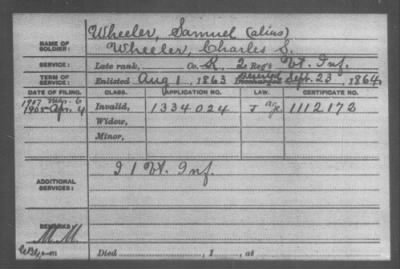 Wheeler, Samuel (alias)
NAME OF SOLDIER: Wheeler, Charles S.
SERVICE: Late rank, Co. K, 2 Reg't Vt. Inf.
TERM OF SERVICE: Enlisted Aug 1, 1863 Deserted Sept. 23, 1864
DATE OF FILING. CLASS. APPLICATION NO. LAW. CERTIFICATE NO.
1907
1908 Apr. 4 Invalid, 1334024 1112172
Widow,
Minor,
ADDITIONAL SERVICES: I 1 Vt. Inf.
REMARKS:
Died , 1 , at